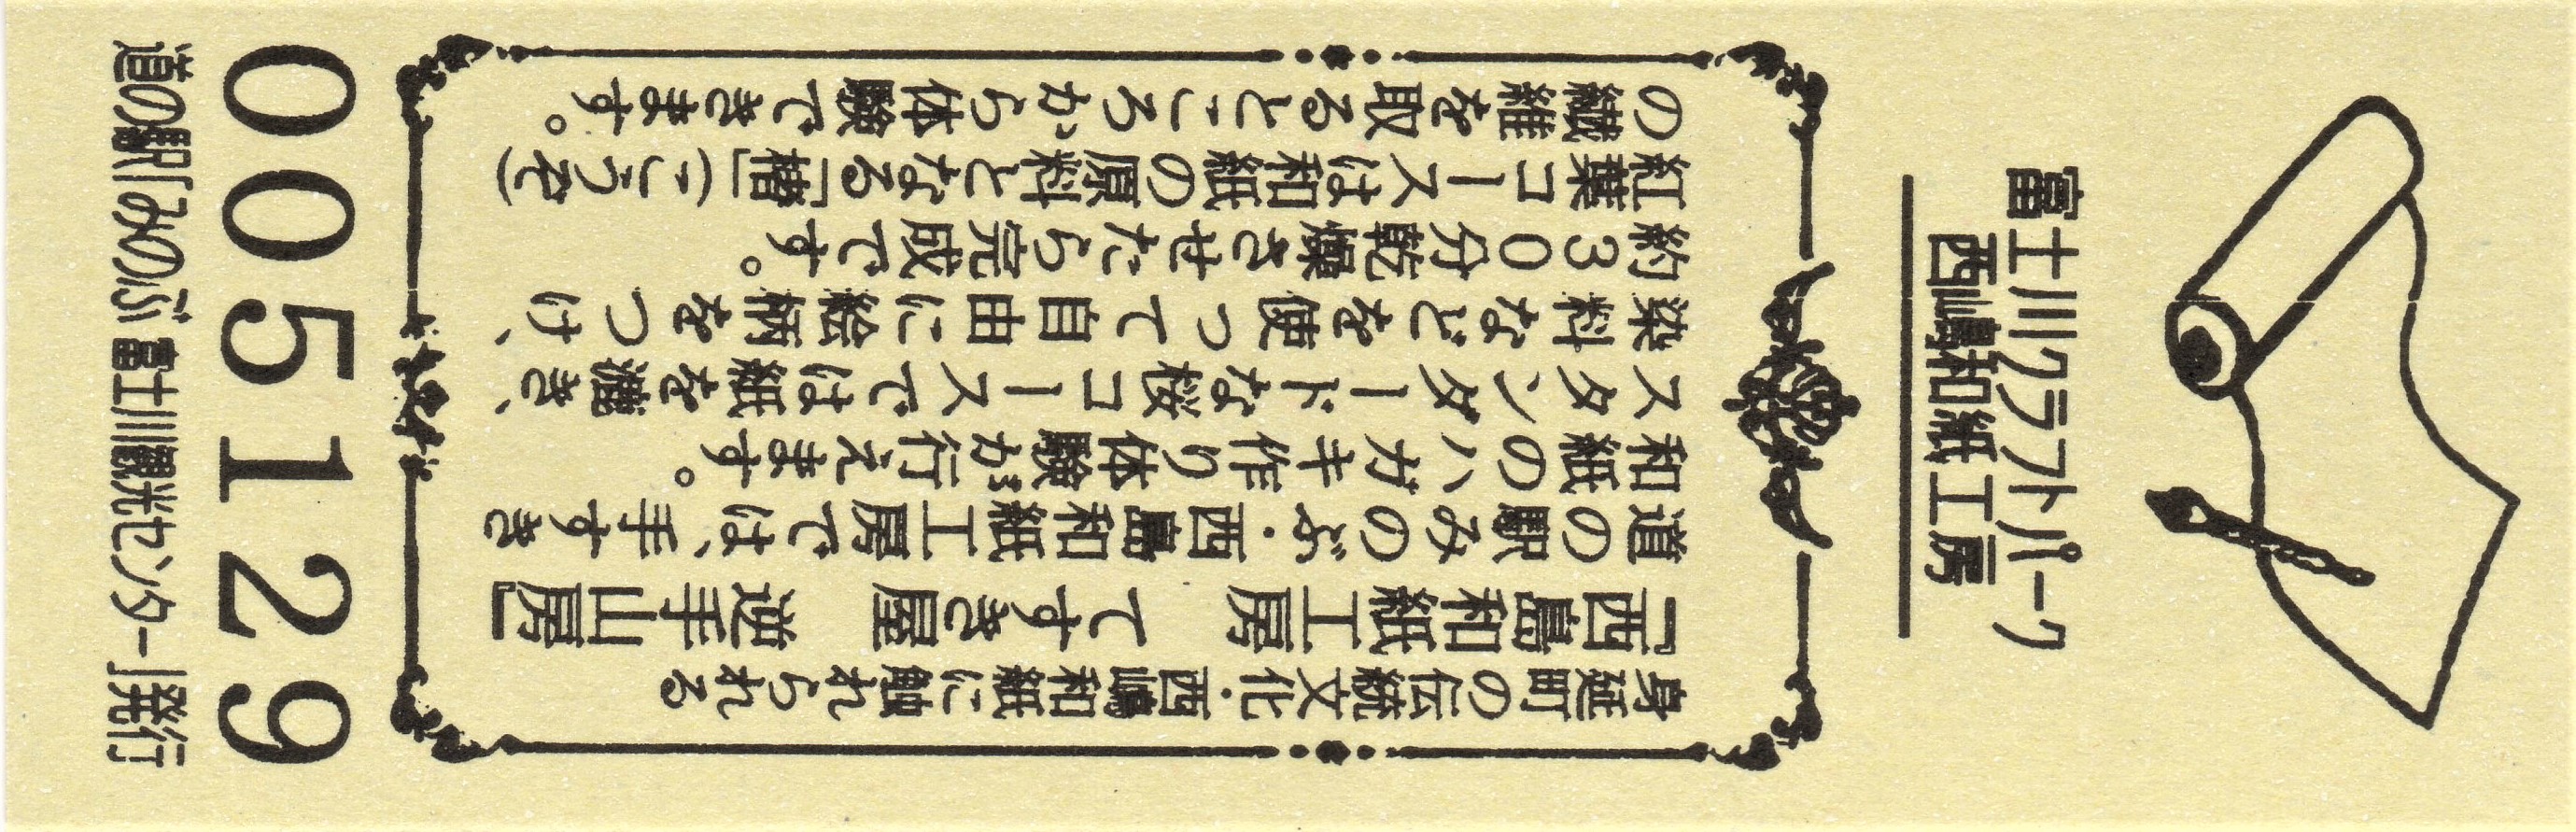 富士川クラフトパーク
西嶋和紙工房
身延町の伝統文化・西嶋和紙に触れられる
『西島和紙工房 てすき屋 逆手山房』
道の駅みのぶ・西島和紙工房では、手すき
和紙のハガキ作り体験が行えます。
スタンダードな桜コースでは紙を漉き、
染料などを使って自由に絵柄をつけ、
約30分乾燥させたら完成です。
紅葉コースは和紙の原料となる「楮」(こうぞ)
の繊維を取るところから体験できます。
005129
道の駅「みのぶ 富士川観光センター」発行